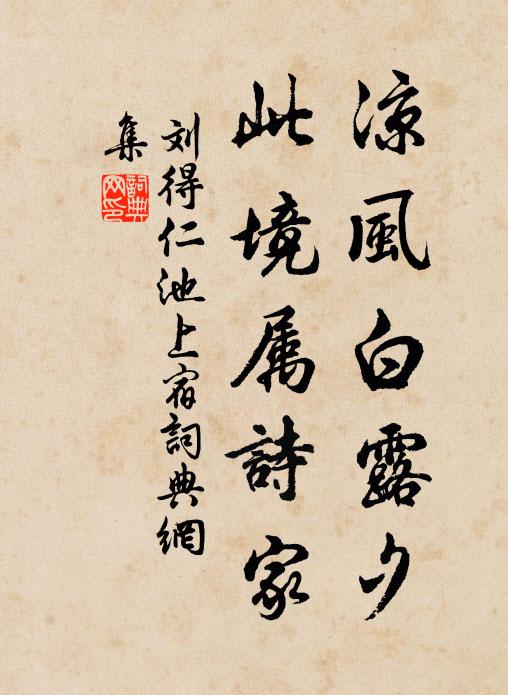 凉風白露夕
此境属詩家
刘得仁池上宿詞典網
集
詞典网印